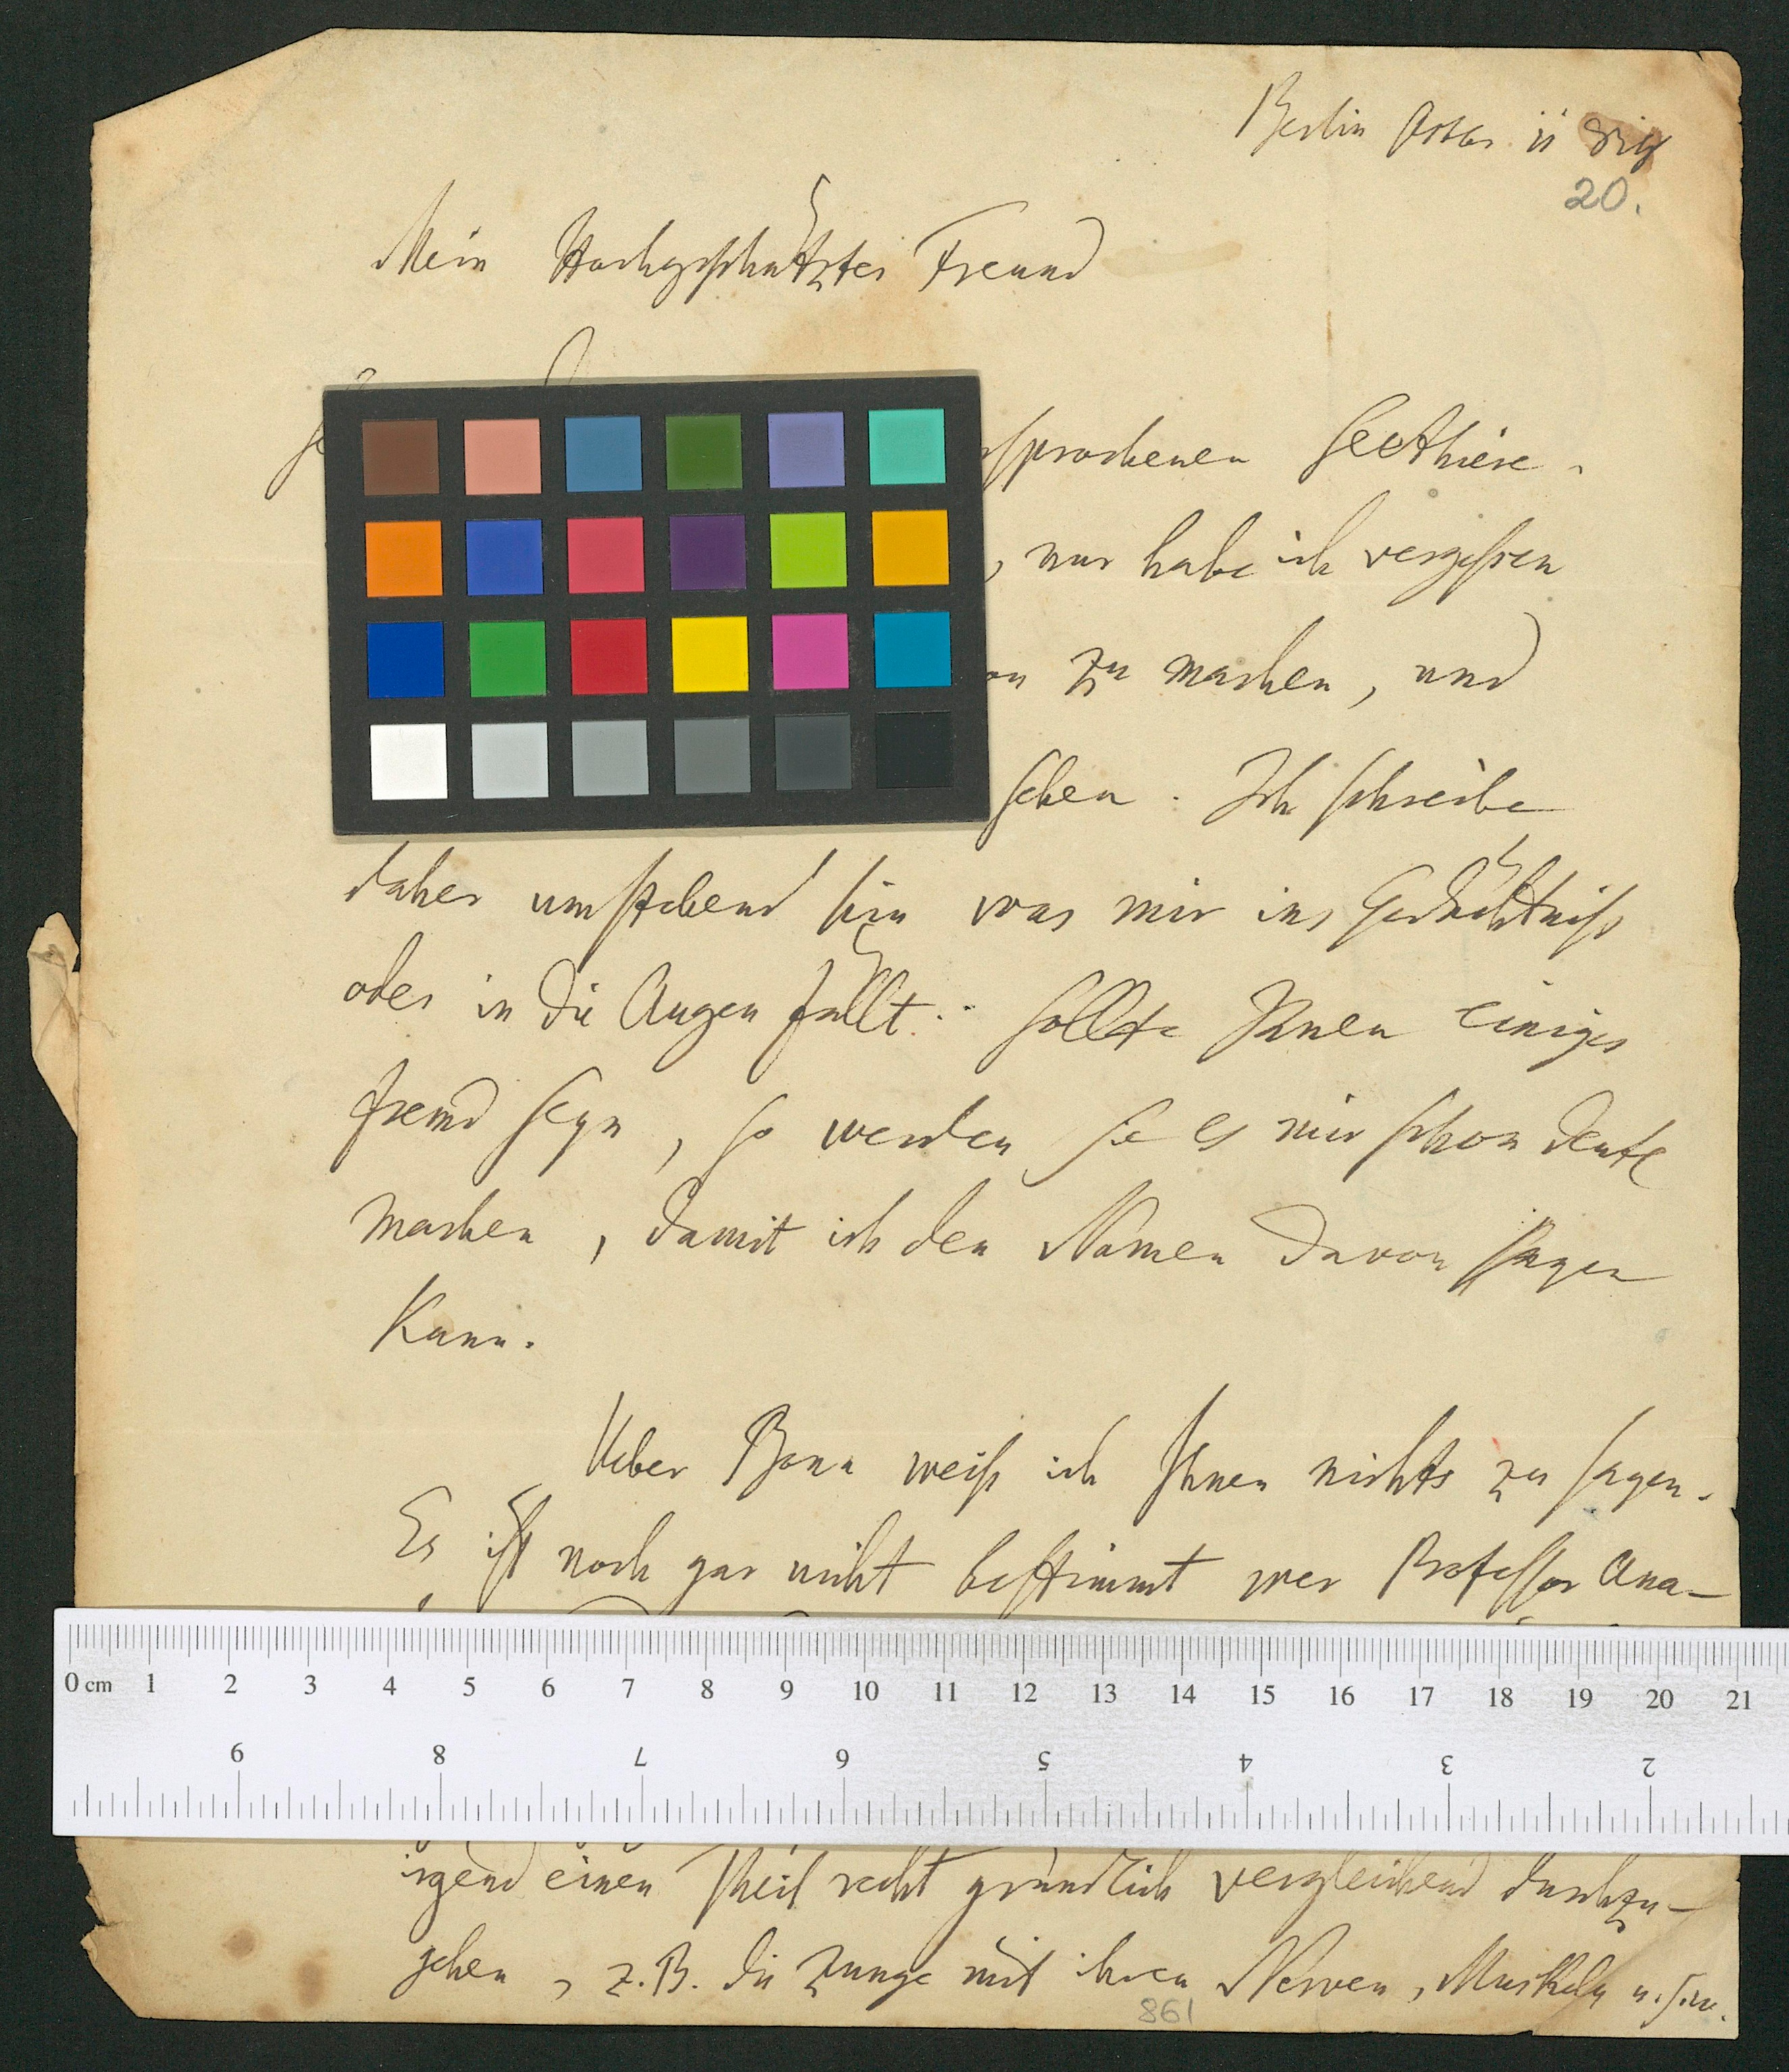 Berlin
20.
Mein Hochgeschätzter Freund
sprochenen Seethiere.
, nur habe ich vergessen
zu machen, und
sehen. Ich schreibe
daher umstehend hin was mir ins Gedächtniss
oder in die Augen fällt. Sollte Ihnen einiges
fremd seyn, so werden sie es mir schon deutl
machen, damit ich den Namen davon sagen
Kann.
Ueber Bonn weiß ich Ihnen nichts zu sagen.
Es ist noch gar nicht bestimmt wer Professor Ana-
0 cm 1 2 3 4 5 6 7 8 9 10 11 12 13 14 15 16 17 18 19 20 21
9 8 7 6 5 4 3 2
irgend einen Theil recht gründlich vergleichend durchzu-
gehen, z.B. die Zunge mit ihren Nerven, Muskeln u.s.w.
861